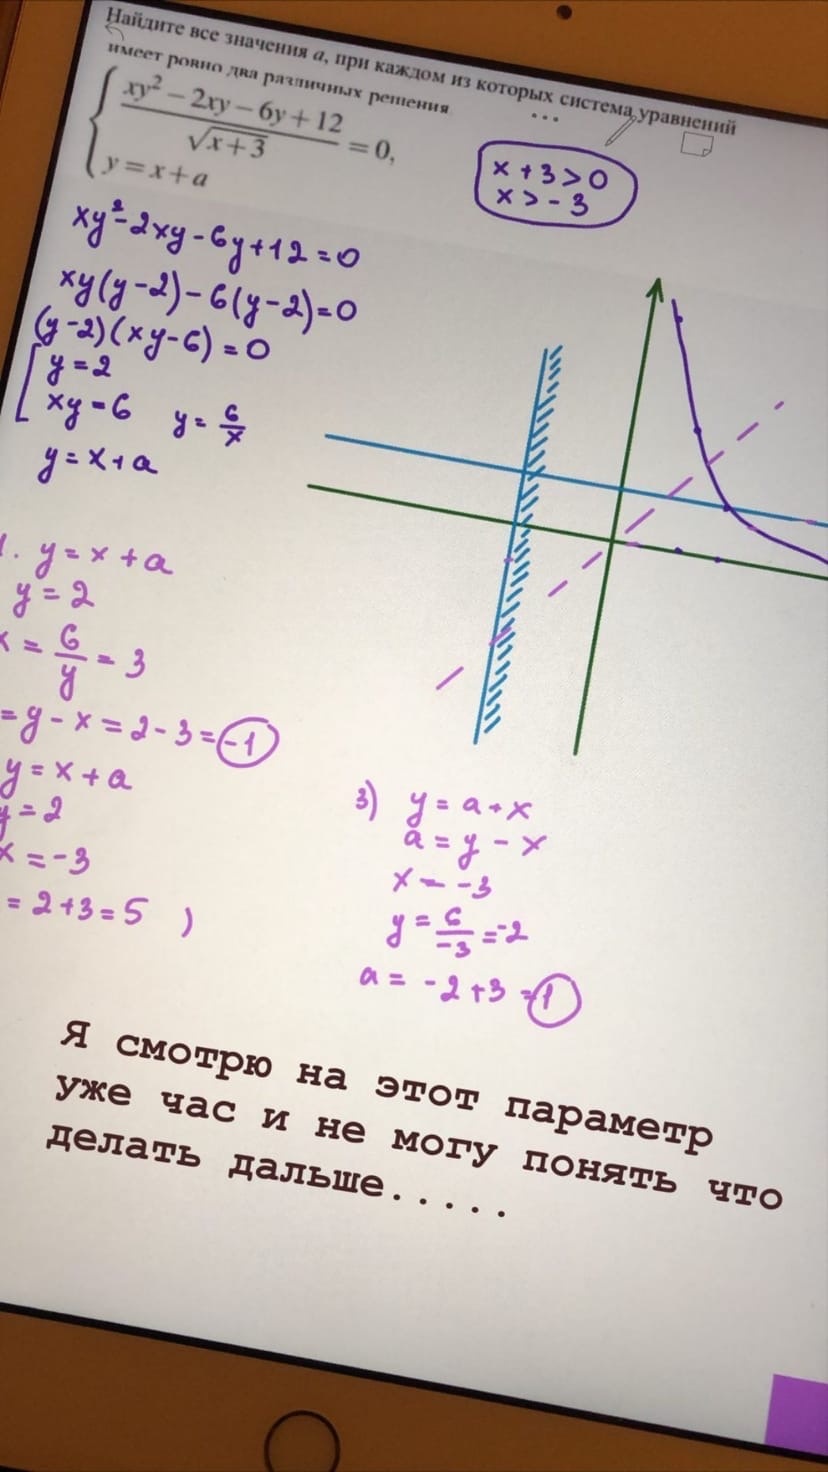 Найдите все значения a, при каждом из которых система уравнений
имеет ровно два различных решения
xy² − 2xy − 6y + 12
√x+3
= 0,
y = x + a
x + 3 > 0
x > - 3
xy²-2xy-6y+12=0
xy(y-2)-6(y-2)=0
(y-2)(xy-6)=0
y=2
xy=6 y= 6/x
y=x+a
1. y=x+a
y=2
x = 6/y = 3
=y-x=2-3=-1
y=x+a
y=2
x=-3
=2+3=5 )
3) y=a+x
a=y-x
x=-3
y= 6/-3 =-2
a= -2+3=1
Я смотрю на этот параметр
уже час и не могу понять что
делать дальше.....